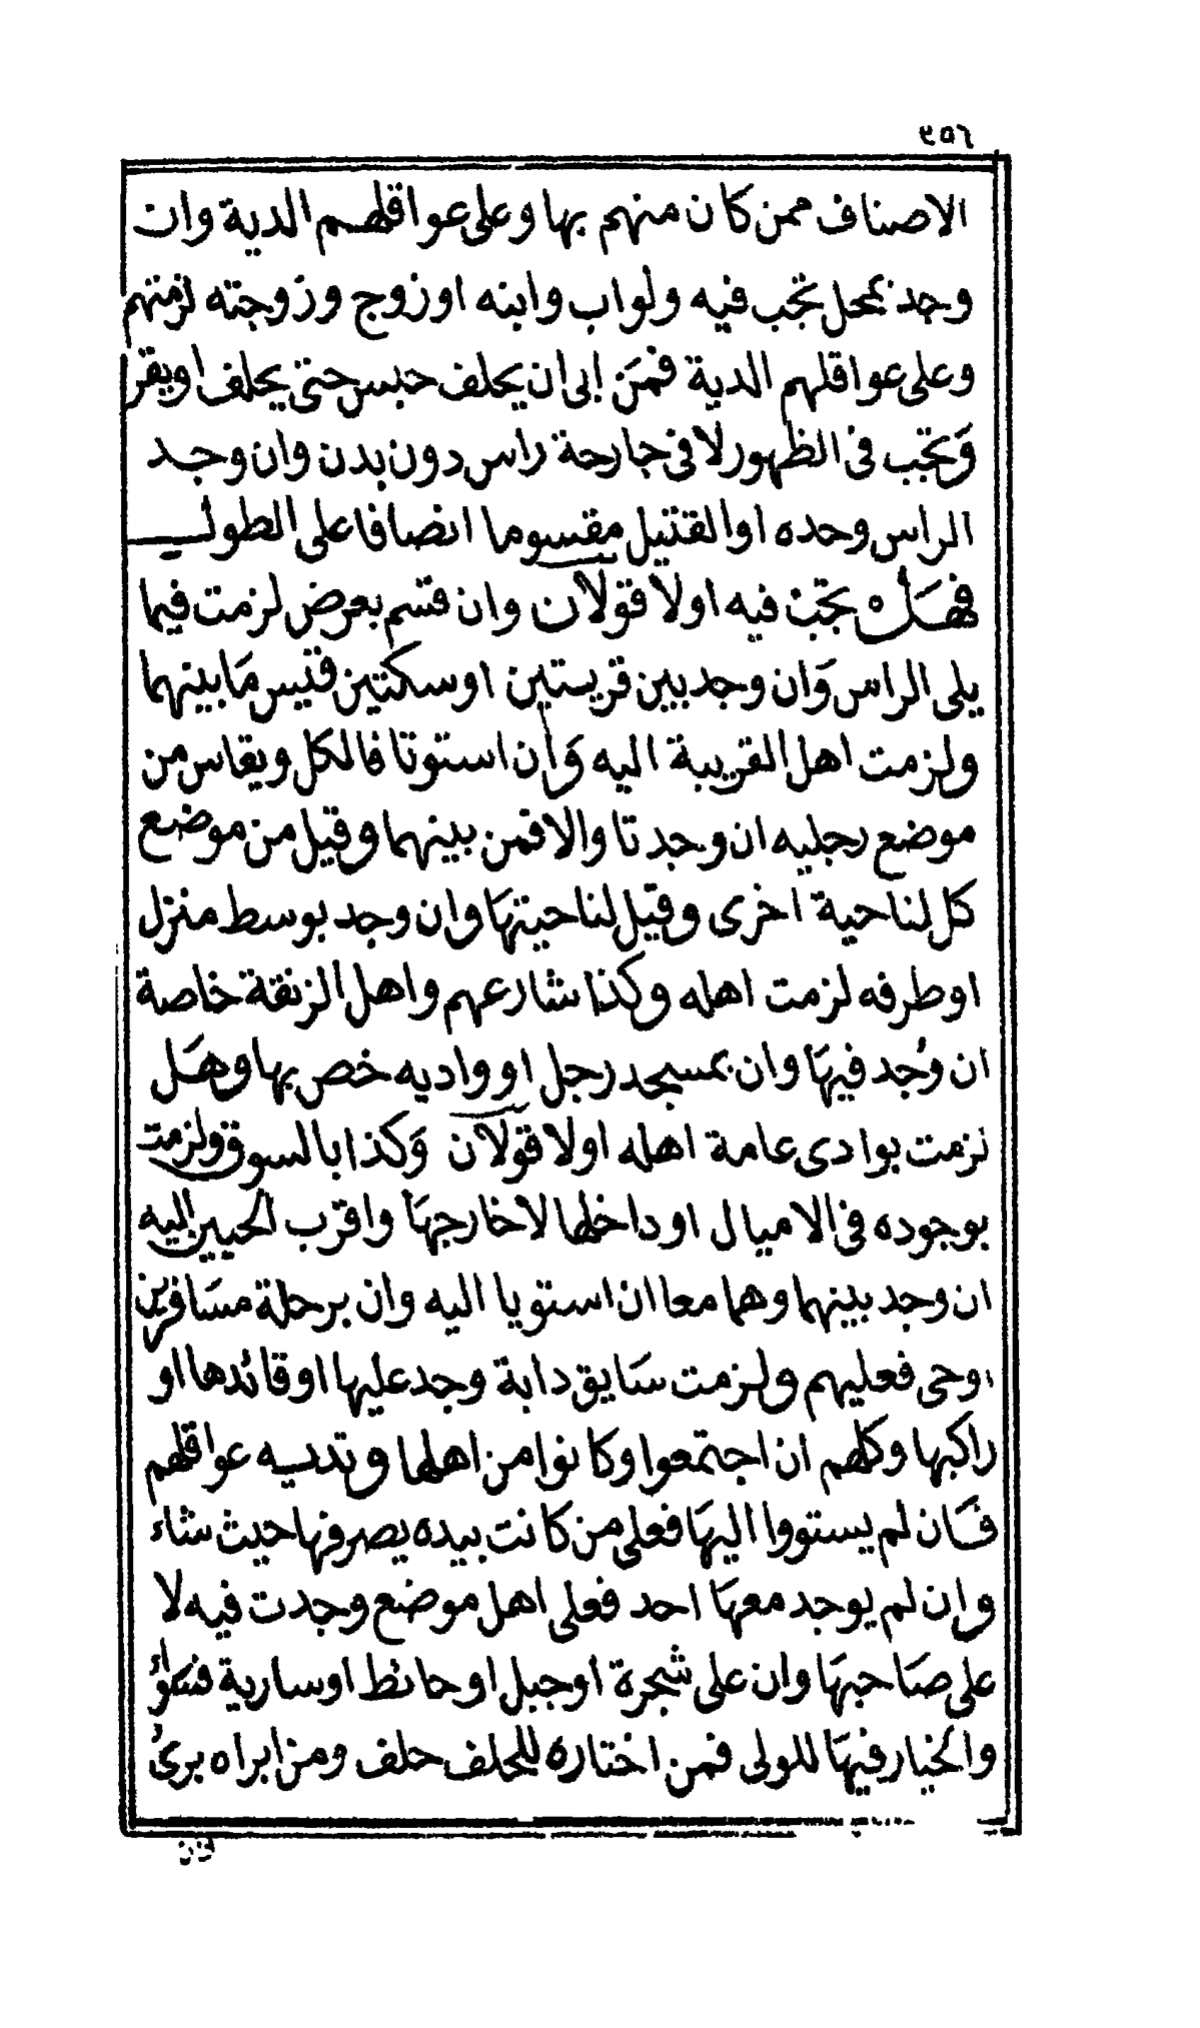 ٤٥٦
الاصناف ممن كان منهم بها وعلى عواقلهم الدية وان
وجد بمحل تجب فيه ولو اب وابنه او زوج وزوجته لزمتهم
وعلى عواقلهم الدية فمَن ابى ان يحلف حبس حتى يحلف او يقر
وَتجب فى الظهور لا فى جارحة راس دون بدن وان وجد
الراس وحده او القتيل مقسوما انصافا على الطول
فهَل تجب فيه اولا قولان وان قسم بعرض لزمت فيما
يلى الراس وَان وجد بين قريتين او سكتين قيس مَا بينهما
ولزمت اهل القريبة اليه وَان استوتا فالكل ويقاس من
موضع رجليه ان وجدتا والا فمن بينهما وقيل من موضع
كل لناحية اخرى وقيل لناحيتهَا وان وجد بوسط منزل
او طرفه لزمت اهله وكذا شارعهم واهل الزنقة خاصة
ان وُجد فيهَا وان بمسجد رجل او واديه خص بها وهَل
لزمت بوادى عامة اهله اولا قولان وَكذا بالسوق ولزمت
بوجوده فى الاميال او داخلها لا خارجهَا واقرب الحيين اليه
ان وجد بينهما وهما معا ان استويا اليه وان برحلة مسَافرين
اوحى فعليهم ولزمت سَايق دابة وجد عليها او قائدها او
راكبها وكلهم ان اجتمعوا وكانوا من اهلها وتديه عواقلهم
فَان لم يستووا اليهَا فعلى من كانت بيده يصرفها حيث شاء
وان لم يوجد معهَا احد فعلى اهل موضع وجدت فيه لا
على صَاحبهَا وان على شجرة اوجبل او حائط او سارية فسَواء
والخيار فيهَا للولى فمن اختاره للحلف حلف ومن ابراه برئ